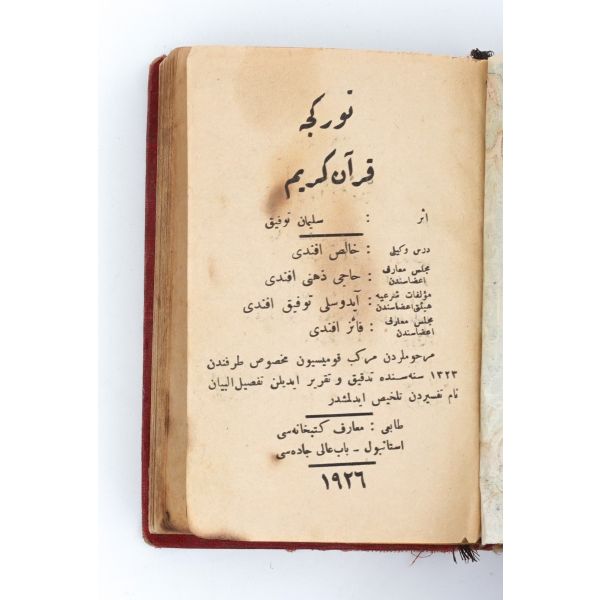 تورکجه
قرآن کریم
اثر : سلیمان توفیق
درس وکیلی : خالص افندی
مجلس معارف اعضاسندن : حاجی ذهنی افندی
مؤلفات شرعیه هیئتی اعضاسندن : آیدوسلی توفیق افندی
مجلس معارف اعضاسندن : فائز افندی
مرحوملردن مرکب قومیسیون مخصوص طرفندن
۱۳۲۳ سنه‌سنده تدقیق و تقریر ایدیلن تفصیل البیان
نام تفسیردن تلخیص ایدلمشدر
طابعی : معارف کتبخانه‌سی
استانبول - باب عالی جاده‌سی
۱۹۲٦